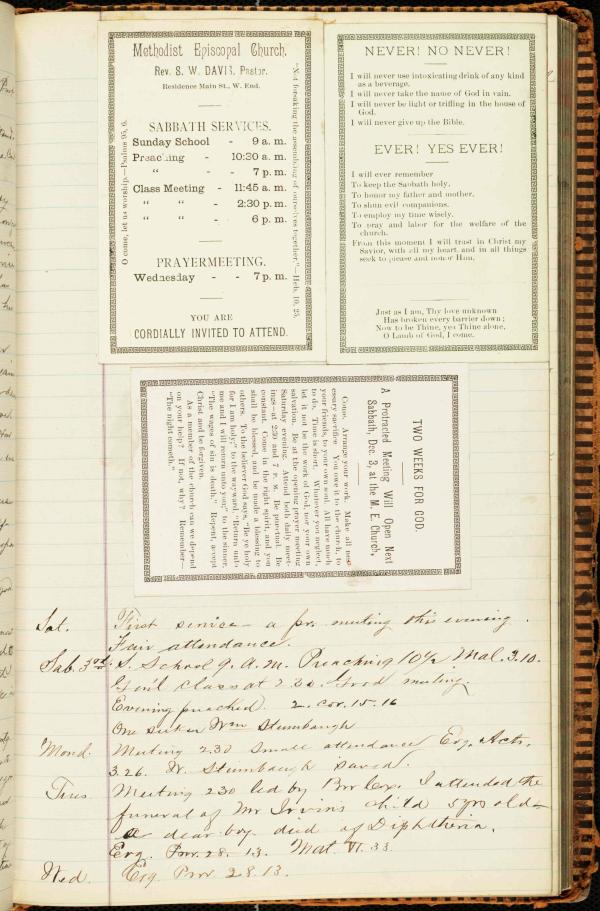 Methodist Episcopal Church.
Rev. S. W. DAVIS, Pastor.
Residence Main St., W. End.
O come, let us worship.—Psalms 95, 6.
SABBATH SERVICES.
Sunday School - 9 a. m.
Preaching - 10:30 a. m.
“ - - 7 p. m.
Class Meeting - 11:45 a. m.
“ “ - 2:30 p. m.
“ “ - 6 p. m.
PRAYERMEETING.
Wednesday - - 7 p. m.
YOU ARE
CORDIALLY INVITED TO ATTEND.
“Not forsaking the assembling of ourselves together.”—Heb. 10, 25.
NEVER! NO NEVER!
I will never use intoxicating drink of any kind
as a beverage.
I will never take the name of God in vain.
I will never be light or trifling in the house of
God.
I will never give up the Bible.
EVER! YES EVER!
I will ever remember
To keep the Sabbath holy.
To honor my father and mother.
To shun evil companions.
To employ my time wisely.
To pray and labor for the welfare of the
church.
From this moment I will trust in Christ my
Savior, with all my heart, and in all things
seek to please and honor Him.
Just as I am, Thy love unknown
Has broken every barrier down;
Now to be Thine, yes Thine alone,
O Lamb of God, I come.
TWO WEEKS FOR GOD.
A Protracted Meeting Will Open Next
Sabbath, Dec. 3, at the M. E. Church.
Come. Arrange your work. Make all nec-
essary sacrifice. You owe it to the church, to
your friends, to your own soul. All have much
to do. Time is short. Whatever you neglect,
let it not be the work of God, nor your own
salvation. Be at the opening prayer meeting
Saturday evening. Attend both daily meet-
ings—at 2:30 and 7 P. M. Be punctual. Be
constant. Come in the right spirit, and you
shall be blessed, and be made a blessing to
others. To the believer God says, “Be ye holy
for I am holy;” to the wayward, “Return unto
me and I will return unto you;” to the sinner,
“The wages of sin is death.” Repent, accept
Christ and be forgiven.
As a member of the church can we depend
on your help? If not, why? Remember—
“The night cometh.”
Sat. First service - a pr. meeting this evening.
Fair attendance.
Sab. 3rd. S. School 9. A. M. Preaching 10½ Mal. 3.10.
Gen'l class at 2.30. Good meeting.
Evening preached. 2. Cor. 15. 16
One seeker Wm Stumbaugh
Mond. Meeting 2.30 small attendance Evg. Acts.
3.26. W. Stumbaugh saved.
Tues Meeting 230 led by Bro Cox. I attended the
funeral of Mr Irvins child 5 yrs old -
a dear boy died of Diphtheria.
Evg. Prov. 28. 13. Mat VI. 33
Wed. Evg Prov 28.13.